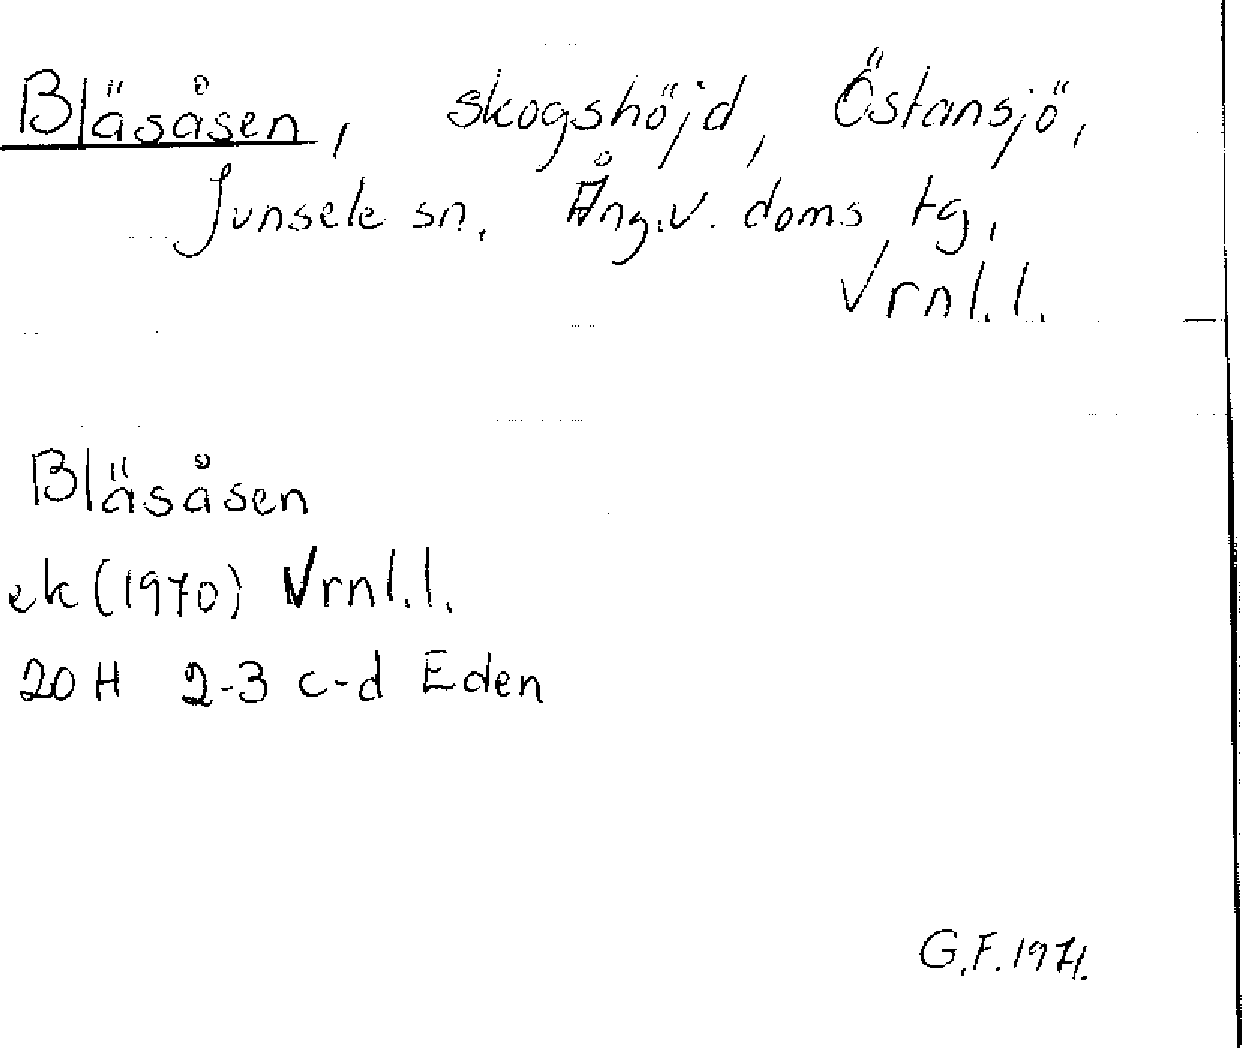 Bläsåsen, skogshöjd, Östansjö,
Junsele sn, Ång.v. doms tg,
Vrnl.l.
Bläsåsen
ek (1970) Vrnl.l.
20 H 2-3 c-d Eden
G.F. 1971.